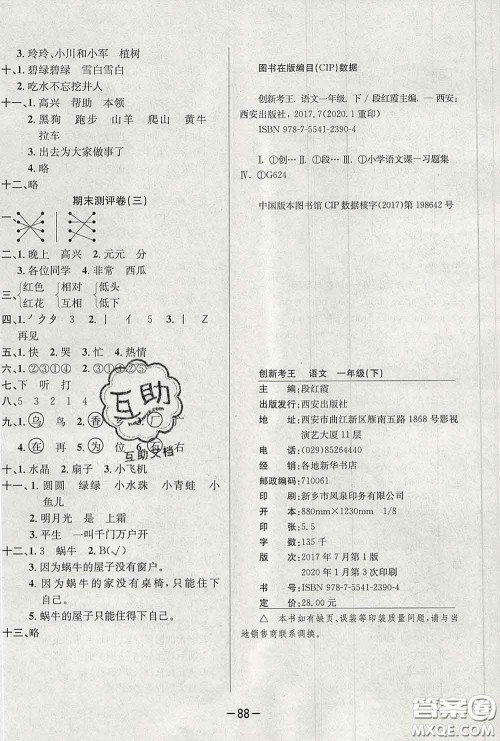 3. 玲玲、小川和小军　植树
十、1. 碧绿碧绿　雪白雪白
2. 吃水不忘挖井人
十一、1. 高兴　帮助　本领
2. 黑狗　跑步　山羊　爬山　黄牛
拉车
3. 出去为大家做事了
4. 略
十二、略
期末测评卷(三)
一、
二、1. 晚上　高兴　2. 元元　分
3. 各位同学　4. 非常　西瓜
三、{红色　{相对　{低头
红花　互相　低下
四、1. ノクタ　3. 丨　イ　5. 丨　乙
再见
五、1. 快　2. 哭　3. 忙　4. 热情
六、1. ②③①④　2. ③①②④
七、下　听　打
八、5　3　2　1　4
九、乌　鸟　香　广　厂
在　再　为　位　右　有
十、1. 水晶　2. 扇子　3. 小飞机
十一、1. 圆圆　绿绿　小水珠　小青蛙　小
鱼儿
2. 明月光　是　上霜
3. 平生　一叫千门万户开
十二、1. 3　蜗牛　2. B(√)
3. 因为蜗牛的屋子没有窗户。
4. 因为蜗牛的家没有桌椅,只能住得
下自己。
5. 蜗牛的屋子只能住得下自己。
十三、略
互助
互助文档
图书在版编目(CIP)数据
创新考王. 语文一年级. 下 / 段红霞主编. — 西安:
西安出版社, 2017.7(2020.1重印)
ISBN 978-7-5541-2390-4
Ⅰ. ①创… Ⅱ. ①段… Ⅲ. ①小学语文课—习题集
Ⅳ. ①G624
中国版本图书馆 CIP 数据核字(2017)第 198642 号
创新考王　语文　一年级(下)
主　编:段红霞
出版发行:西安出版社
地　址:西安市曲江新区雁南五路 1868 号影视
演艺大厦 11 层
电　话:(029)85264440
经　销:各地新华书店
邮政编码:710061
印　刷:新乡市凤泉印务有限公司
开　本:880mm×1230mm　1/8
印　张:5.5
字　数:135 千
版　次:2017 年 7 月第 1 版
2020 年 1 月第 3 次印刷
书　号:ISBN 978-7-5541-2390-4
定　价:28.00 元
△ 本书如有缺页、误装等印装质量问题,请与当
地销售商联系调换。
－88－
答案圈
MXQE.COM